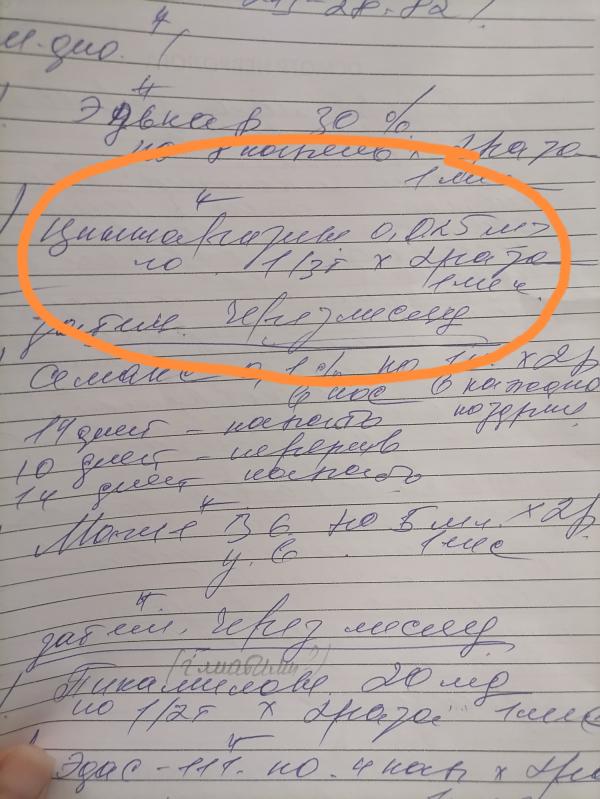 4
Элькар 30 %
по 8 капель x 2 раза
1 мес
4
Циннаризин 0,025 мг
по 1/3т x 2 раза
1 мес.
затем. Через месяц
Семакс 0,1% по 1к. x 2р
в нос в каждую
ноздрю
14 дней - капать
10 дней - перерыв
14 дней капать
4
Магне B6 по 5 мл. x 2р
1 мес
4
затем. Через месяц
Пикамилон 20 мг
по 1/2т x 2 раза 1 мес
4
Эдас - 111. по 4 кап x